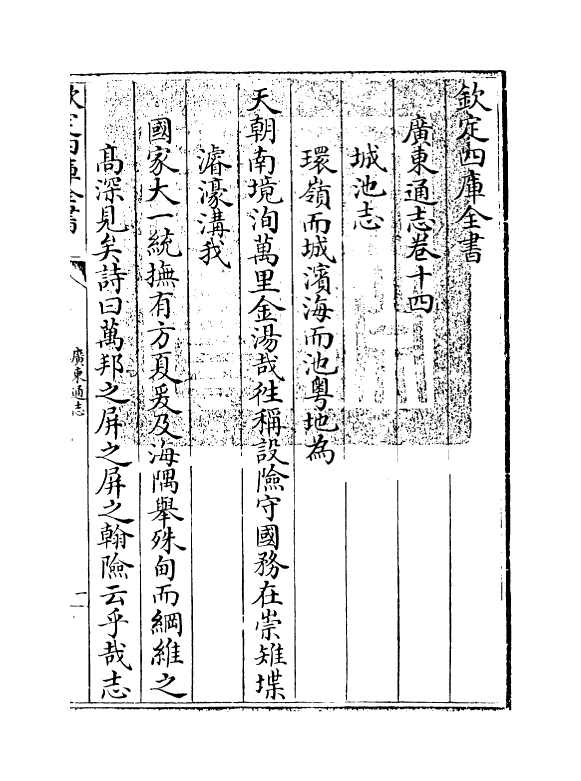 欽定四庫全書
廣東通志卷十四
城池志
環嶺而城濱海而池粵地為
天朝南境洵萬里金湯哉徃稱設險守國務在崇雉堞
濬濠溝我
國家大一統撫有方夏爰及海隅舉殊甸而綱維之
髙深見矣詩曰萬邦之屏之屏之翰險云乎哉志
欽定四庫全書
廣東通志
一